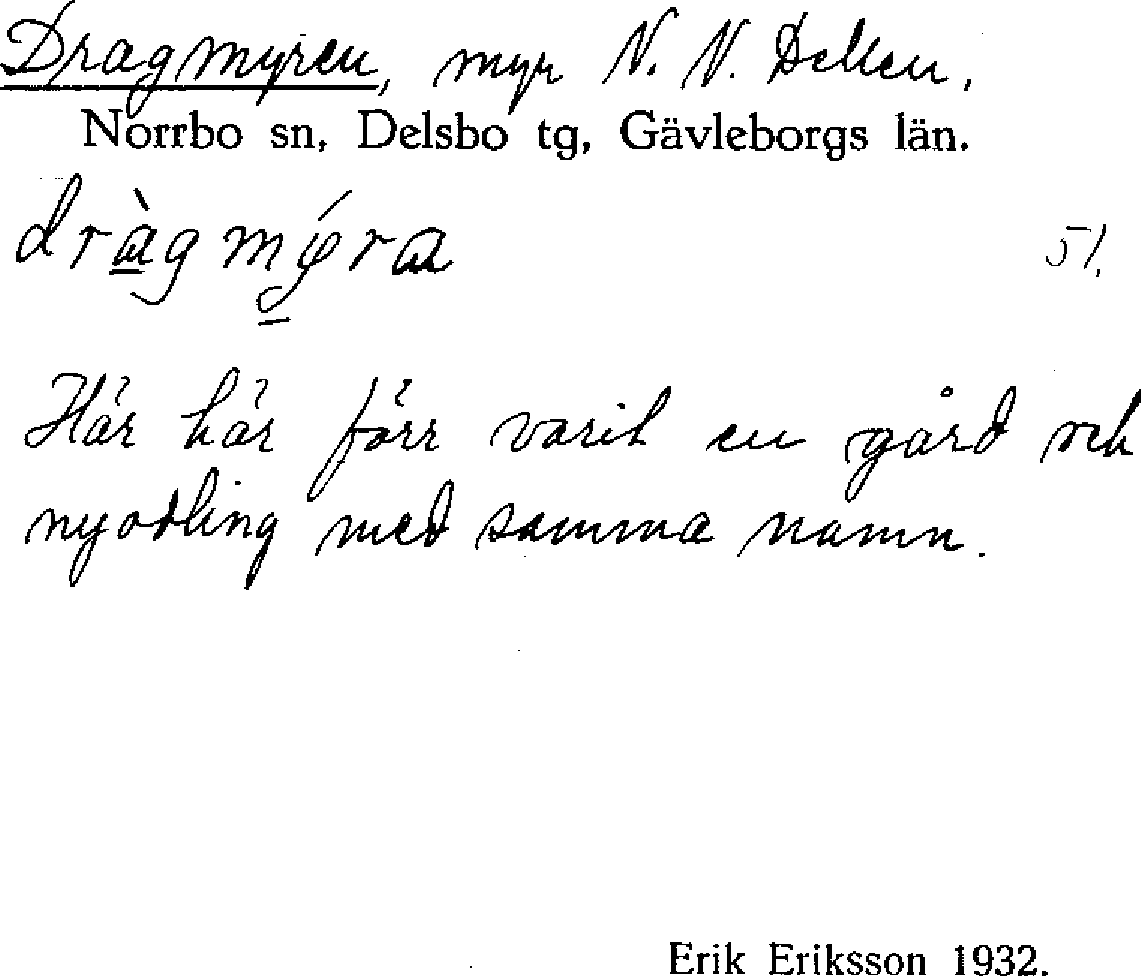 Dragmyren, myr N. N. Dellen.
Norrbo sn, Delsbo tg, Gävleborgs län.
dràgmýra 51.
Här här förr varit en gård och
nyodling med samma namn.
Erik Eriksson 1932.